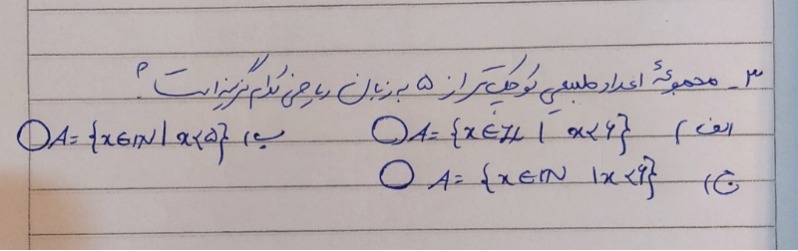 ۳- مجموعهٔ اعداد طبیعی کوچکتر از ۵ به زبان ریاضی کدام گزینه است؟
الف) A = {x∈ℤ | x<۶} ب) A = {x∈ℕ | x<۵}
ج) A = {x∈ℕ | x<۶}